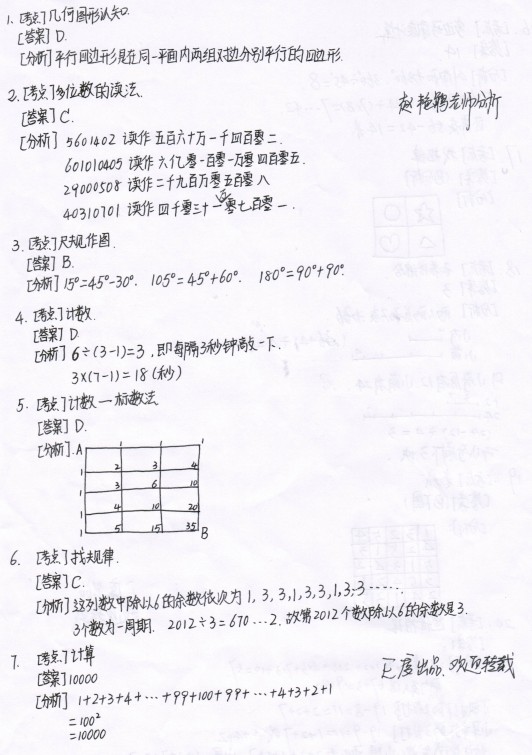 1. [考点] 几何图形认知.
[答案] D.
[分析] 平行四边形是在同一平面内两组对边分别平行的四边形.
2. [考点] 多位数的读法.
[答案] C.
[分析] 5601402 读作 五百六十万一千四百零二.
601010405 读作 六亿零一百零一万零四百零五.
29000508 读作 二千九百万零五百零八
40310701 读作 四千零三十一万零七百零一.
3. [考点] 尺规作图.
[答案] B.
[分析] 15°=45°-30°. 105°=45°+60°. 180°=90°+90°.
4. [考点] 计数.
[答案] D.
[分析] 6÷(3-1)=3, 即每隔3秒钟敲一下.
3×(7-1)=18(秒)
5. [考点] 计数—标数法
[答案] D.
[分析] A 1 1 1
1 2 3 4
1 3 6 10
1 4 10 20
1 5 15 35 B
6. [考点] 找规律.
[答案] C.
[分析] 这列数中除以6的余数依次为 1, 3, 3, 1, 3, 3, 1, 3, 3……
3个数为一周期. 2012÷3=670…2. 故第2012个数除以6的余数是3.
7. [考点] 计算
[答案] 10000
[分析] 1+2+3+4+…+99+100+99+…+4+3+2+1
=100²
=10000
老师分析
出品. 欢迎转载